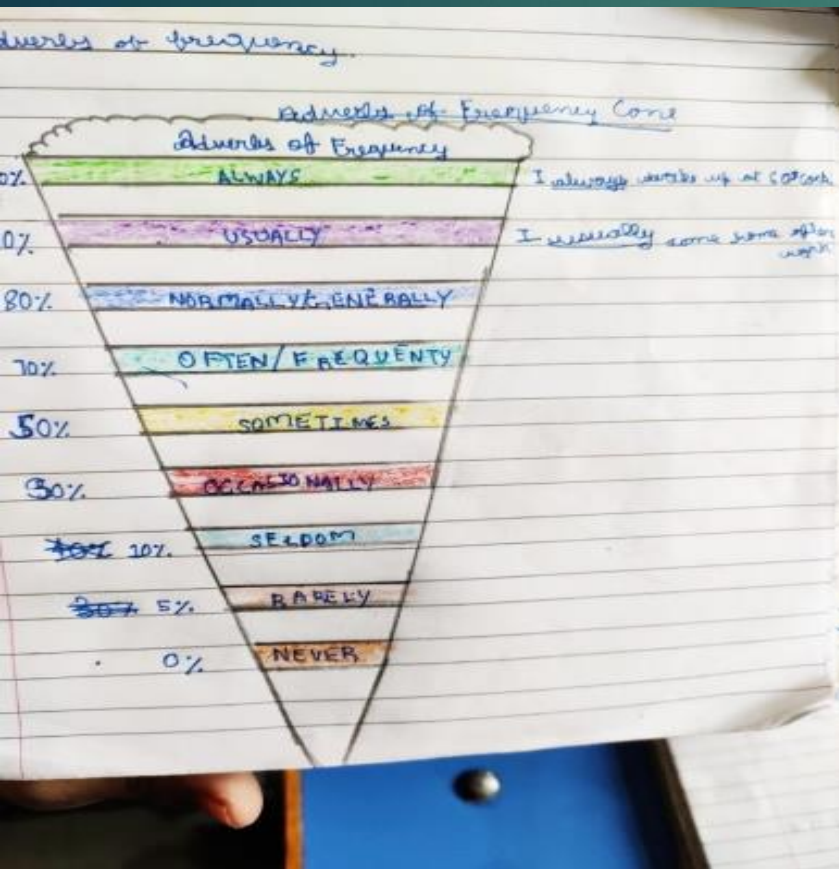 adverbs of frequency.
Adverbs of Frequency Cone
Adverbs of Frequency
0% ALWAYS I always up at 6 O'clock
0% USUALLY I usually come home after
work
80% NORMALLY/GENERALLY
70% OFTEN/FREQUENTY
50% SOMETIMES
30% OCCASIONALLY
10% SELDOM
5% RARELY
0% NEVER